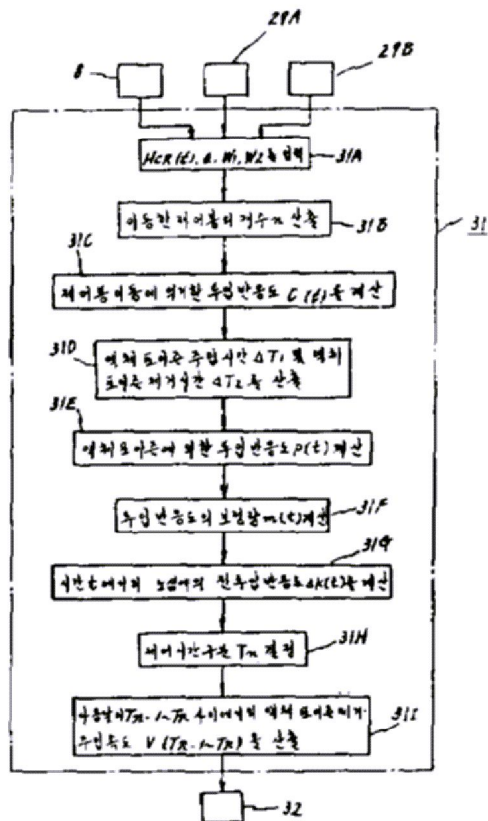 29A
8
29B
HCR(t), a, W1, W2를 입력
31A
이동한 제어봉의 갯수 n 산출
31B
31
31C
제어봉이동에 의거한 투입반응도 C(t)를 계산
31D
액체 포이즌 주입시간 ΔT1 및 액체
포이즌 제거시간 ΔT2를 산출
31E
액체포이즌에 의한 투입반응도 P(t) 계산
투입반응도의 보정량 m(t)계산
31F
31G
시간 t에서의 노심에의 전투입반응도 ΔK(t)를 계산
제어시간구분 Tn 결정
31H
Tn-1~Tn 사이에서의 액체 포이즌 제거·
주입속도 V(Tn-1~Tn)을 산출
31I
32